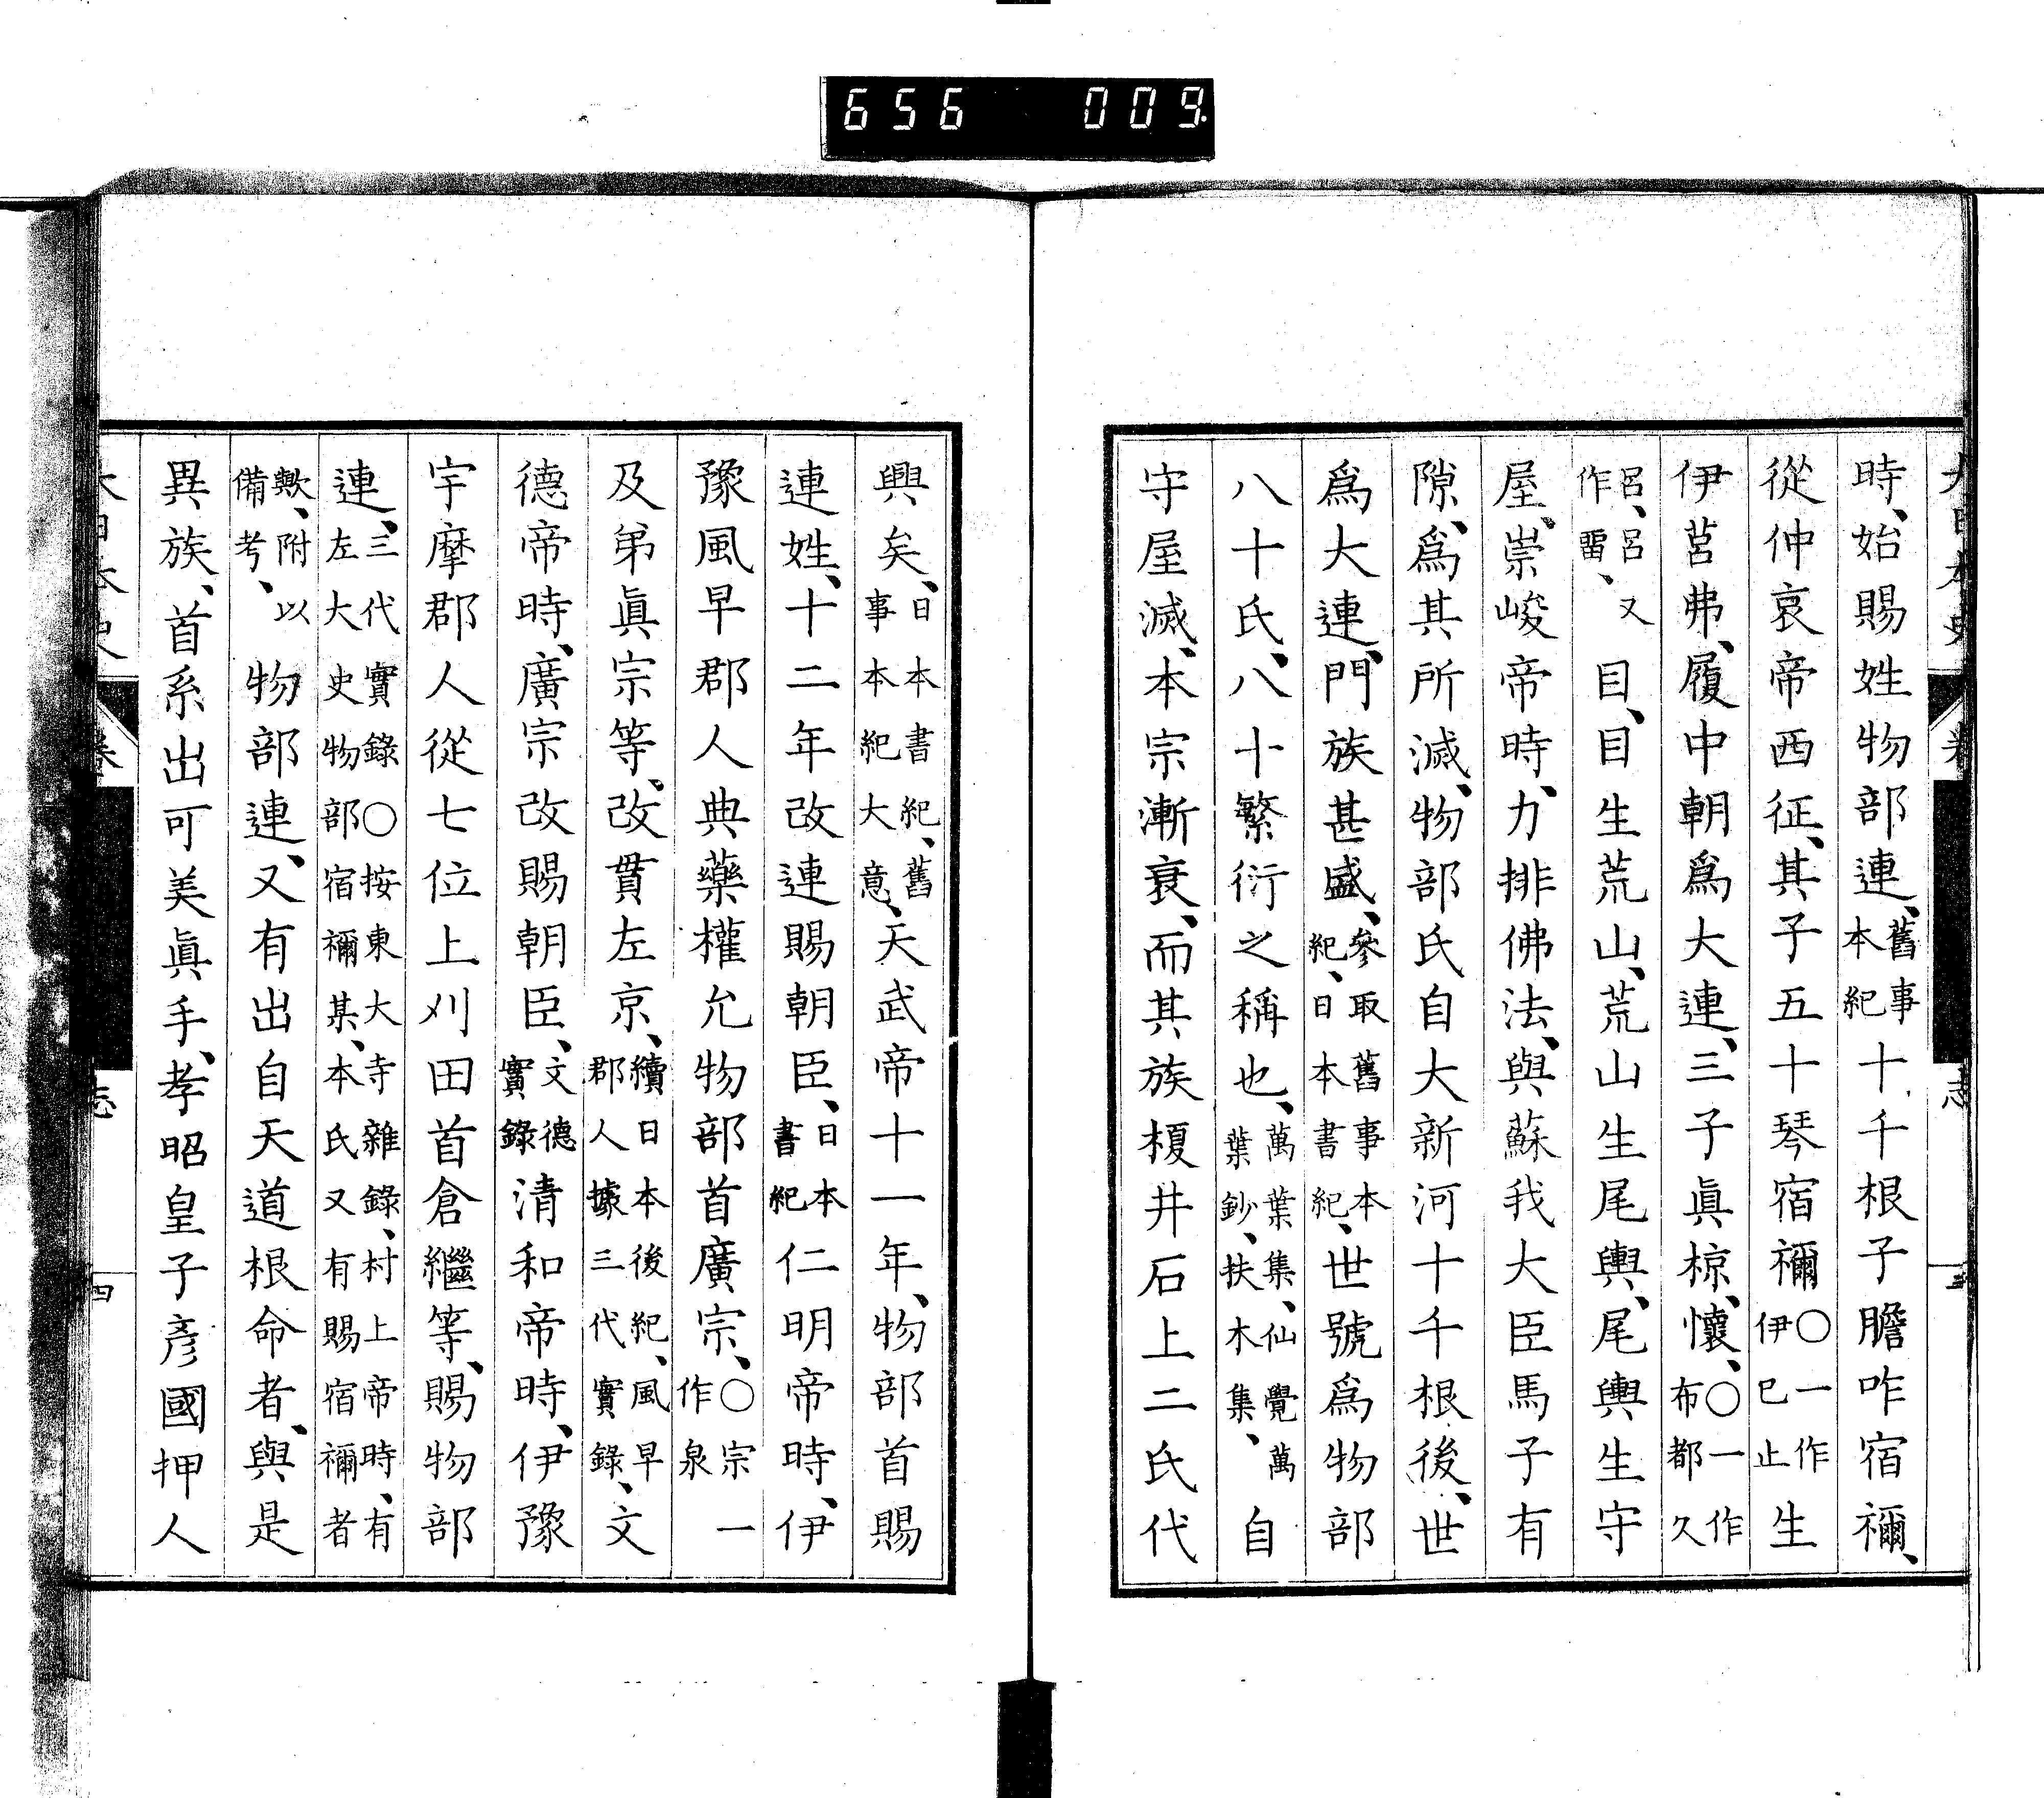 656 009
時、始賜姓物部連、舊事本紀十千根子膽咋宿禰、
從仲哀帝西征、其子五十琴宿禰〇一作伊巳止生
伊莒弗、履中朝爲大連、三子眞椋、懷、〇一作布都久
呂、呂又作畱、目、目生荒山、荒山生尾輿、尾輿生守
屋、崇峻帝時、力排佛法、與蘇我大臣馬子有
隙、爲其所滅、物部氏自大新河十千根後、世
爲大連、門族甚盛、參取舊事本紀、日本書紀、世號爲物部
八十氏、八十繁衍之稱也、萬葉集、仙覺萬葉鈔、扶木集、自
守屋滅、本宗漸衰、而其族榎井石上二氏代
興矣、日本書紀、舊事本紀大意、天武帝十一年、物部首賜
連姓、十二年改連賜朝臣、日本書紀仁明帝時、伊
豫風早郡人典藥權允物部首廣宗、〇宗一作泉
及弟眞宗等、改貫左京、續日本後紀、風早郡人據三代實錄、文
德帝時、廣宗改賜朝臣、文德實錄淸和帝時、伊豫
宇摩郡人從七位上刈田首倉繼等、賜物部
連、三代實錄〇按東大寺雜錄、村上帝時、有左大史物部宿禰某、本氏又有賜宿禰者
歟、附以備考、物部連、又有出自天道根命者、與是
異族、首系出可美眞手、孝昭皇子彥國押人
志
四